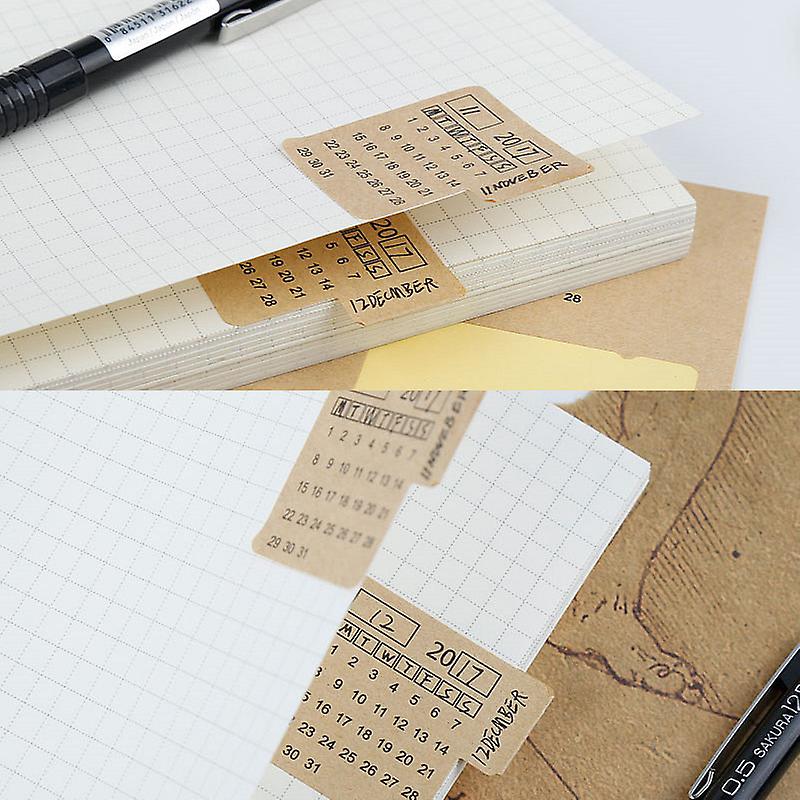 0 84511 31622
Japan / Japon / Japón
11
2017
M T W T F S S
1 2 3 4 5 6 7
8 9 10 11 12 13 14
15 16 17 18 19 20 21
22 23 24 25 26 27 28
29 30 31
11NOVEBER
2017
F S S
5 6 7
12 13 14
19 20 21
26 27 28
12DECMBER
28
2017
M T W T F S S
1 2 3 4 5 6 7
8 9 10 11 12 13 14
15 16 17 18 19 20 21
22 23 24 25 26 27 28
29 30 31
11NOVEBER
12
2017
M T W T F S S
1 2 3 4 5 6 7
9 10 11 12 13 14
16 17 18 19 20 21
23 24 25 26 27 28
30 31
12DECMBER
0.5 SAKURA 125